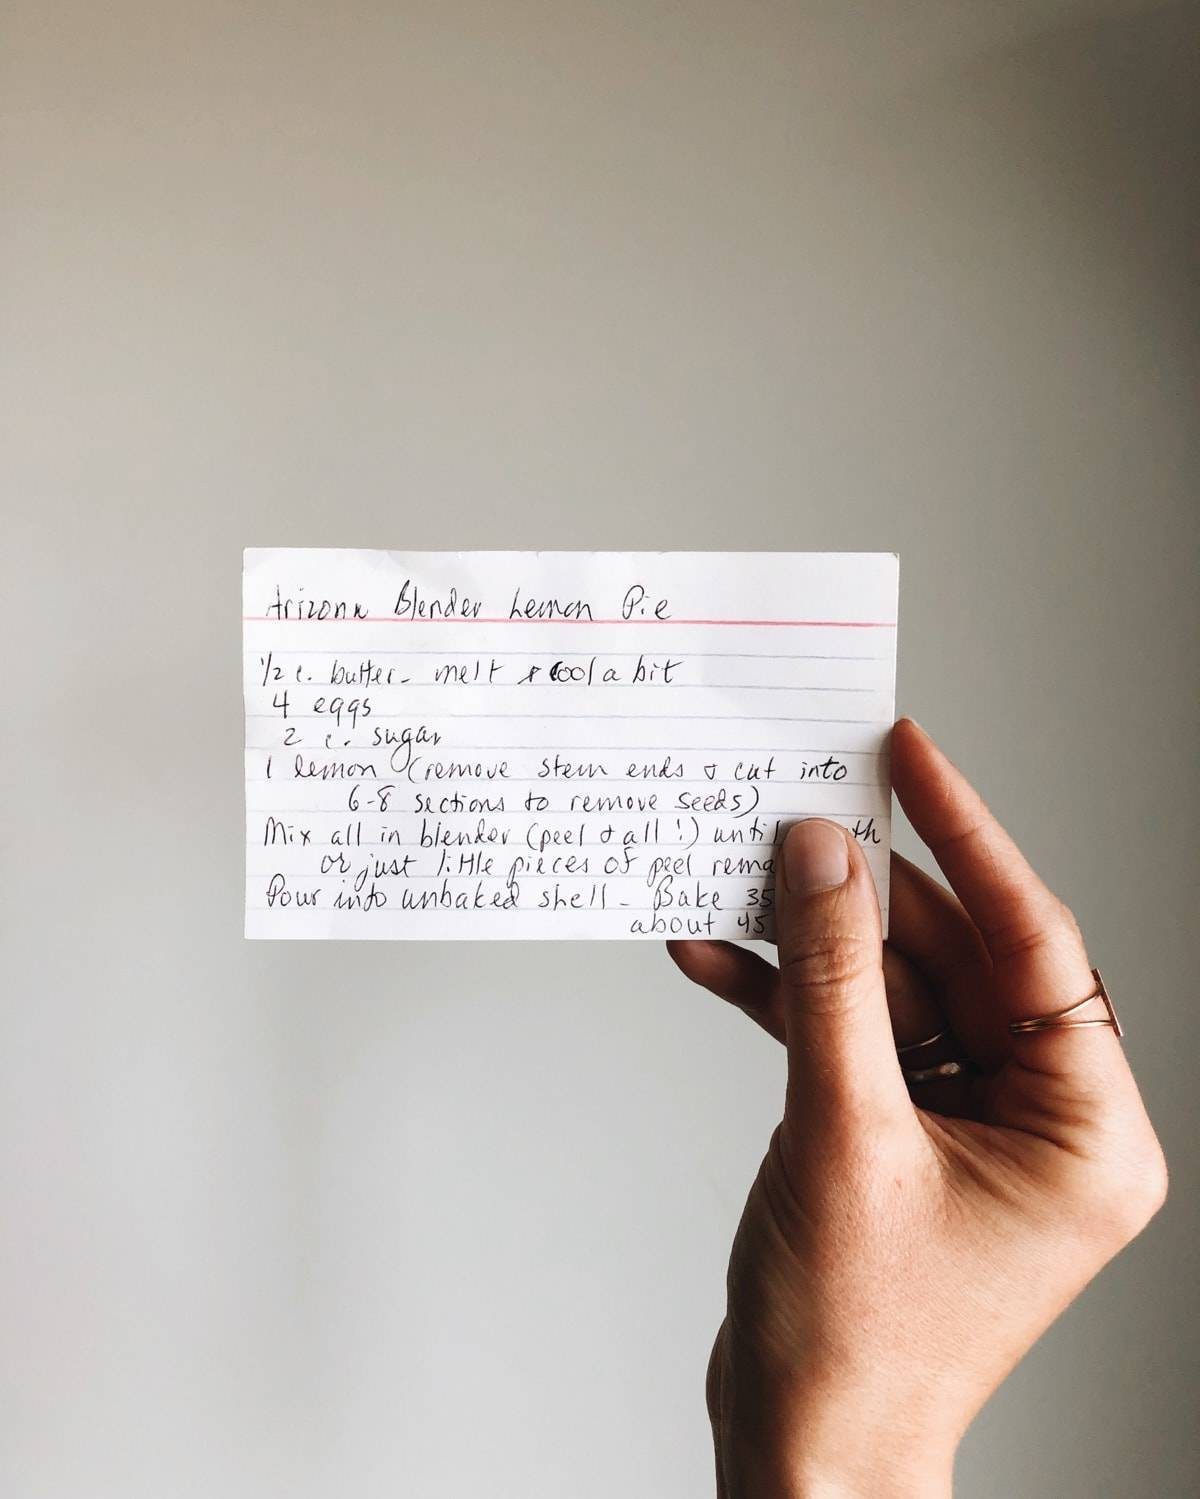 Arizona Blender Lemon Pie
1/2 c. butter - melt & cool a bit
4 eggs
2 c. sugar
1 lemon (remove stem ends & cut into
6-8 sections to remove seeds)
Mix all in blender (peel & all!) until
or just little pieces of peel
Pour into unbaked shell - Bake 35
about 45